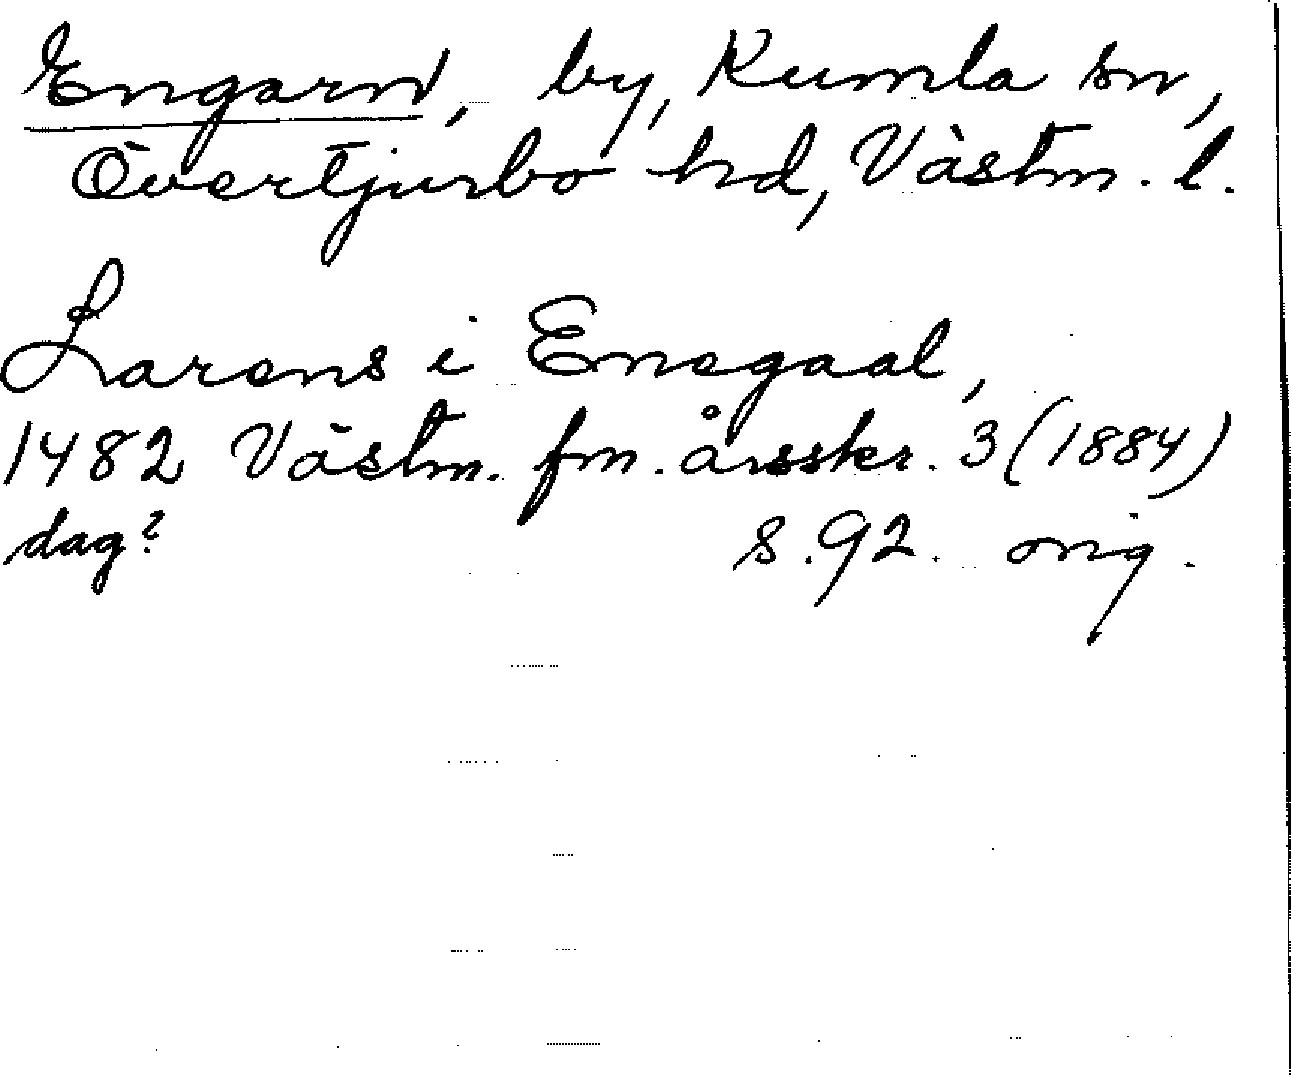 Engarn, by, Kumla sn,
Övertjurbo hd, Västm. l.
Larens i Enegaal,
1482 Västm. fm. årsskr. 3 (1884)
dag? s. 92. orig.